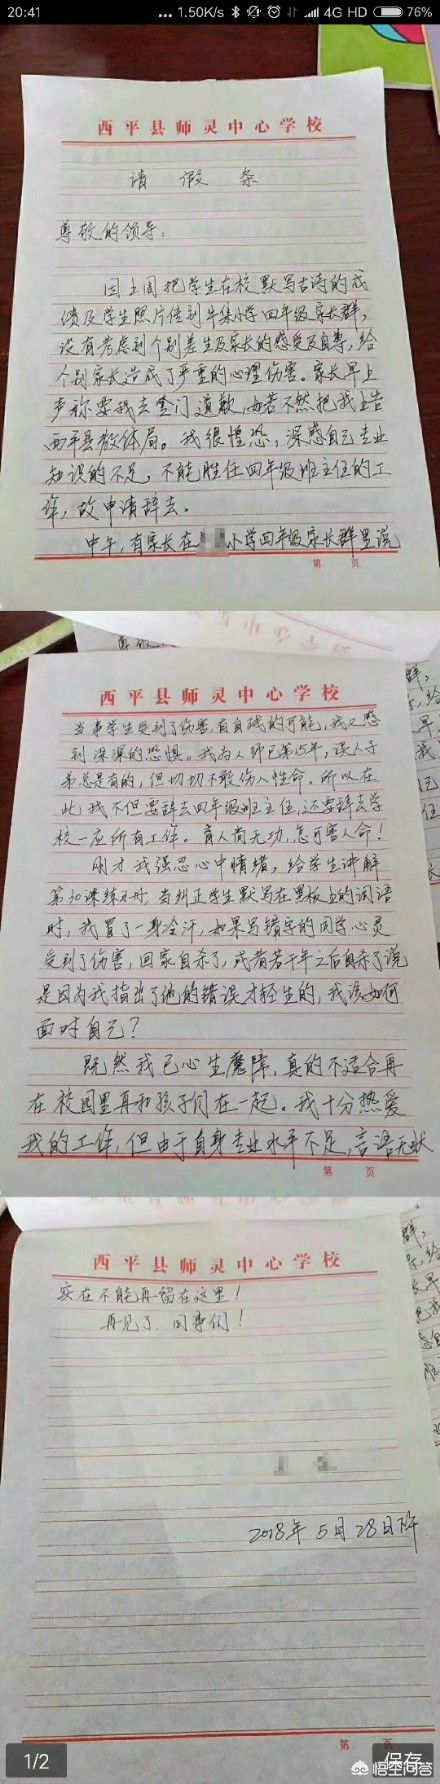 20:41
... 1.50K/s 4G HD 76%
西平县师灵中心学校
请假条
尊敬的领导:
因上周把学生在校默写古诗的成
绩及学生照片传到牛集小学四年级家长群,
没有考虑到个别差生及家长的感受及自尊,给
个别家长造成了严重的心理伤害。家长早上
声称要我去登门道歉,如若不然把我上告
西平县教体局。我很惶恐,深感自己专业
知识的不足,不能胜任四年级班主任的工
作,故申请辞去。
中午,有家长在小学四年级家长群里说
第 页
西平县师灵中心学校
当事学生受到了伤害,有自残的可能,我又感
到深深的恐惧。我为人师已第15年,误人子
弟总是有的,但切切不敢伤人性命。所以在
此,我不但要辞去四年级班主任,还要辞去学
校一应所有工作。育人尚无功,怎可害人命!
刚才我强忍心中情绪,给学生讲解
第30课练习册,当纠正学生默写在黑板上的词语
时,我冒了一身冷汗,如果写错字的同学心灵
受到了伤害,回家自杀了,或者若干年之后自杀了说
是因为我指出了他的错误才轻生的,我该如何
面对自己?
既然我已心生魔障,真的不适合再
在校园里再和孩子们在一起。我十分热爱
我的工作,但由于自身专业水平不足,言语无状
第 页
西平县师灵中心学校
实在不能再留在这里!
再见了,同事们!
2018年5月28日下午
第 页
1/2
保存
悟空问答